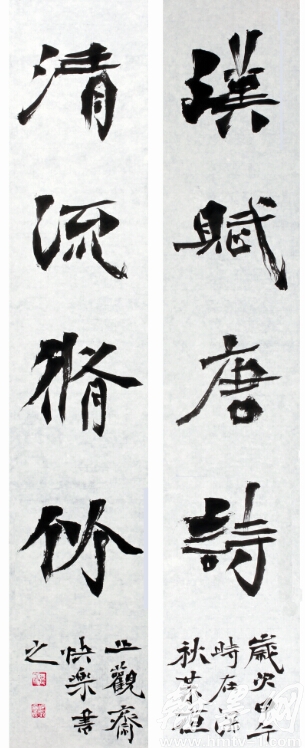 漢賦唐詩
歲次甲午
時在深
秋
清流脩竹
止觀齋
快樂書
之